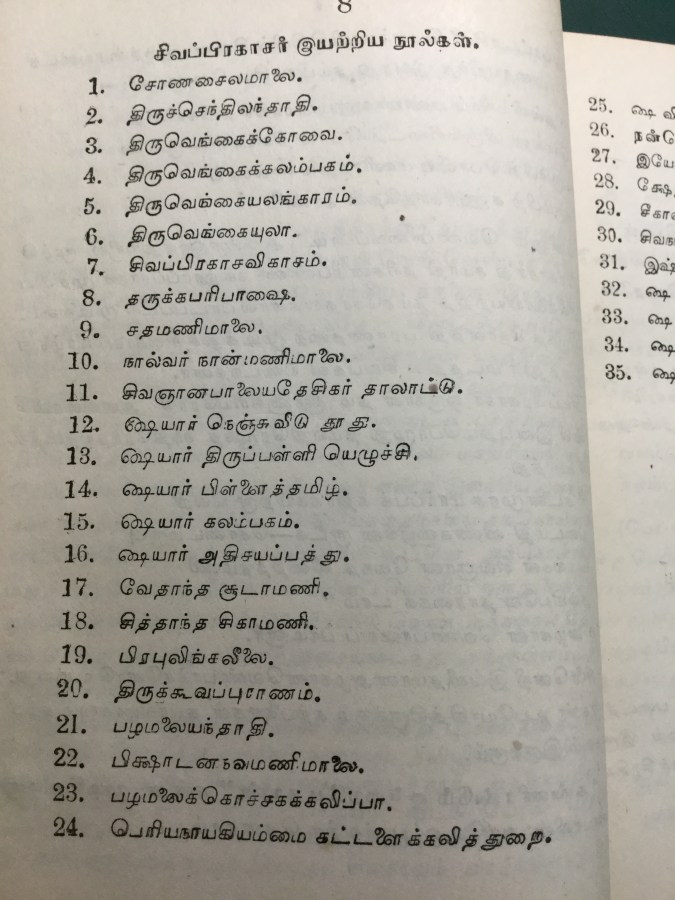 8
சிவப்பிரகாசர் இயற்றிய நூல்கள்.
1. சோணசைலமாலை.
2. திருச்செந்திலந்தாதி.
3. திருவெங்கைக்கோவை.
4. திருவெங்கைக்கலம்பகம்.
5. திருவெங்கையலங்காரம்.
6. திருவெங்கையுலா.
7. சிவப்பிரகாசவிகாசம்.
8. தருக்கபரிபாஷை.
9. சதமணிமாலை.
10. நால்வர் நான்மணிமாலை.
11. சிவஞானபாலையதேசிகர் தாலாட்டு.
12. ஷையார் நெஞ்சுவிடு தூது.
13. ஷையார் திருப்பள்ளி யெழுச்சி.
14. ஷையார் பிள்ளைத்தமிழ்.
15. ஷையார் கலம்பகம்.
16. ஷையார் அதிசயப்பத்து.
17. வேதாந்த சூடாமணி.
18. சித்தாந்த சிகாமணி.
19. பிரபுலிங்கலீலை.
20. திருக்கூவப்புராணம்.
21. பழமலையந்தாதி.
22. பிக்ஷாடனநவமணிமாலை.
23. பழமலைக்கொச்சகக்கலிப்பா.
24. பெரியநாயகியம்மை கட்டளைக்கலித்துறை.
25. ஷை
26.
27.
28.
29.
30.
31.
32. ஷை
33. ஷை
34. ஷை
35. ஷை